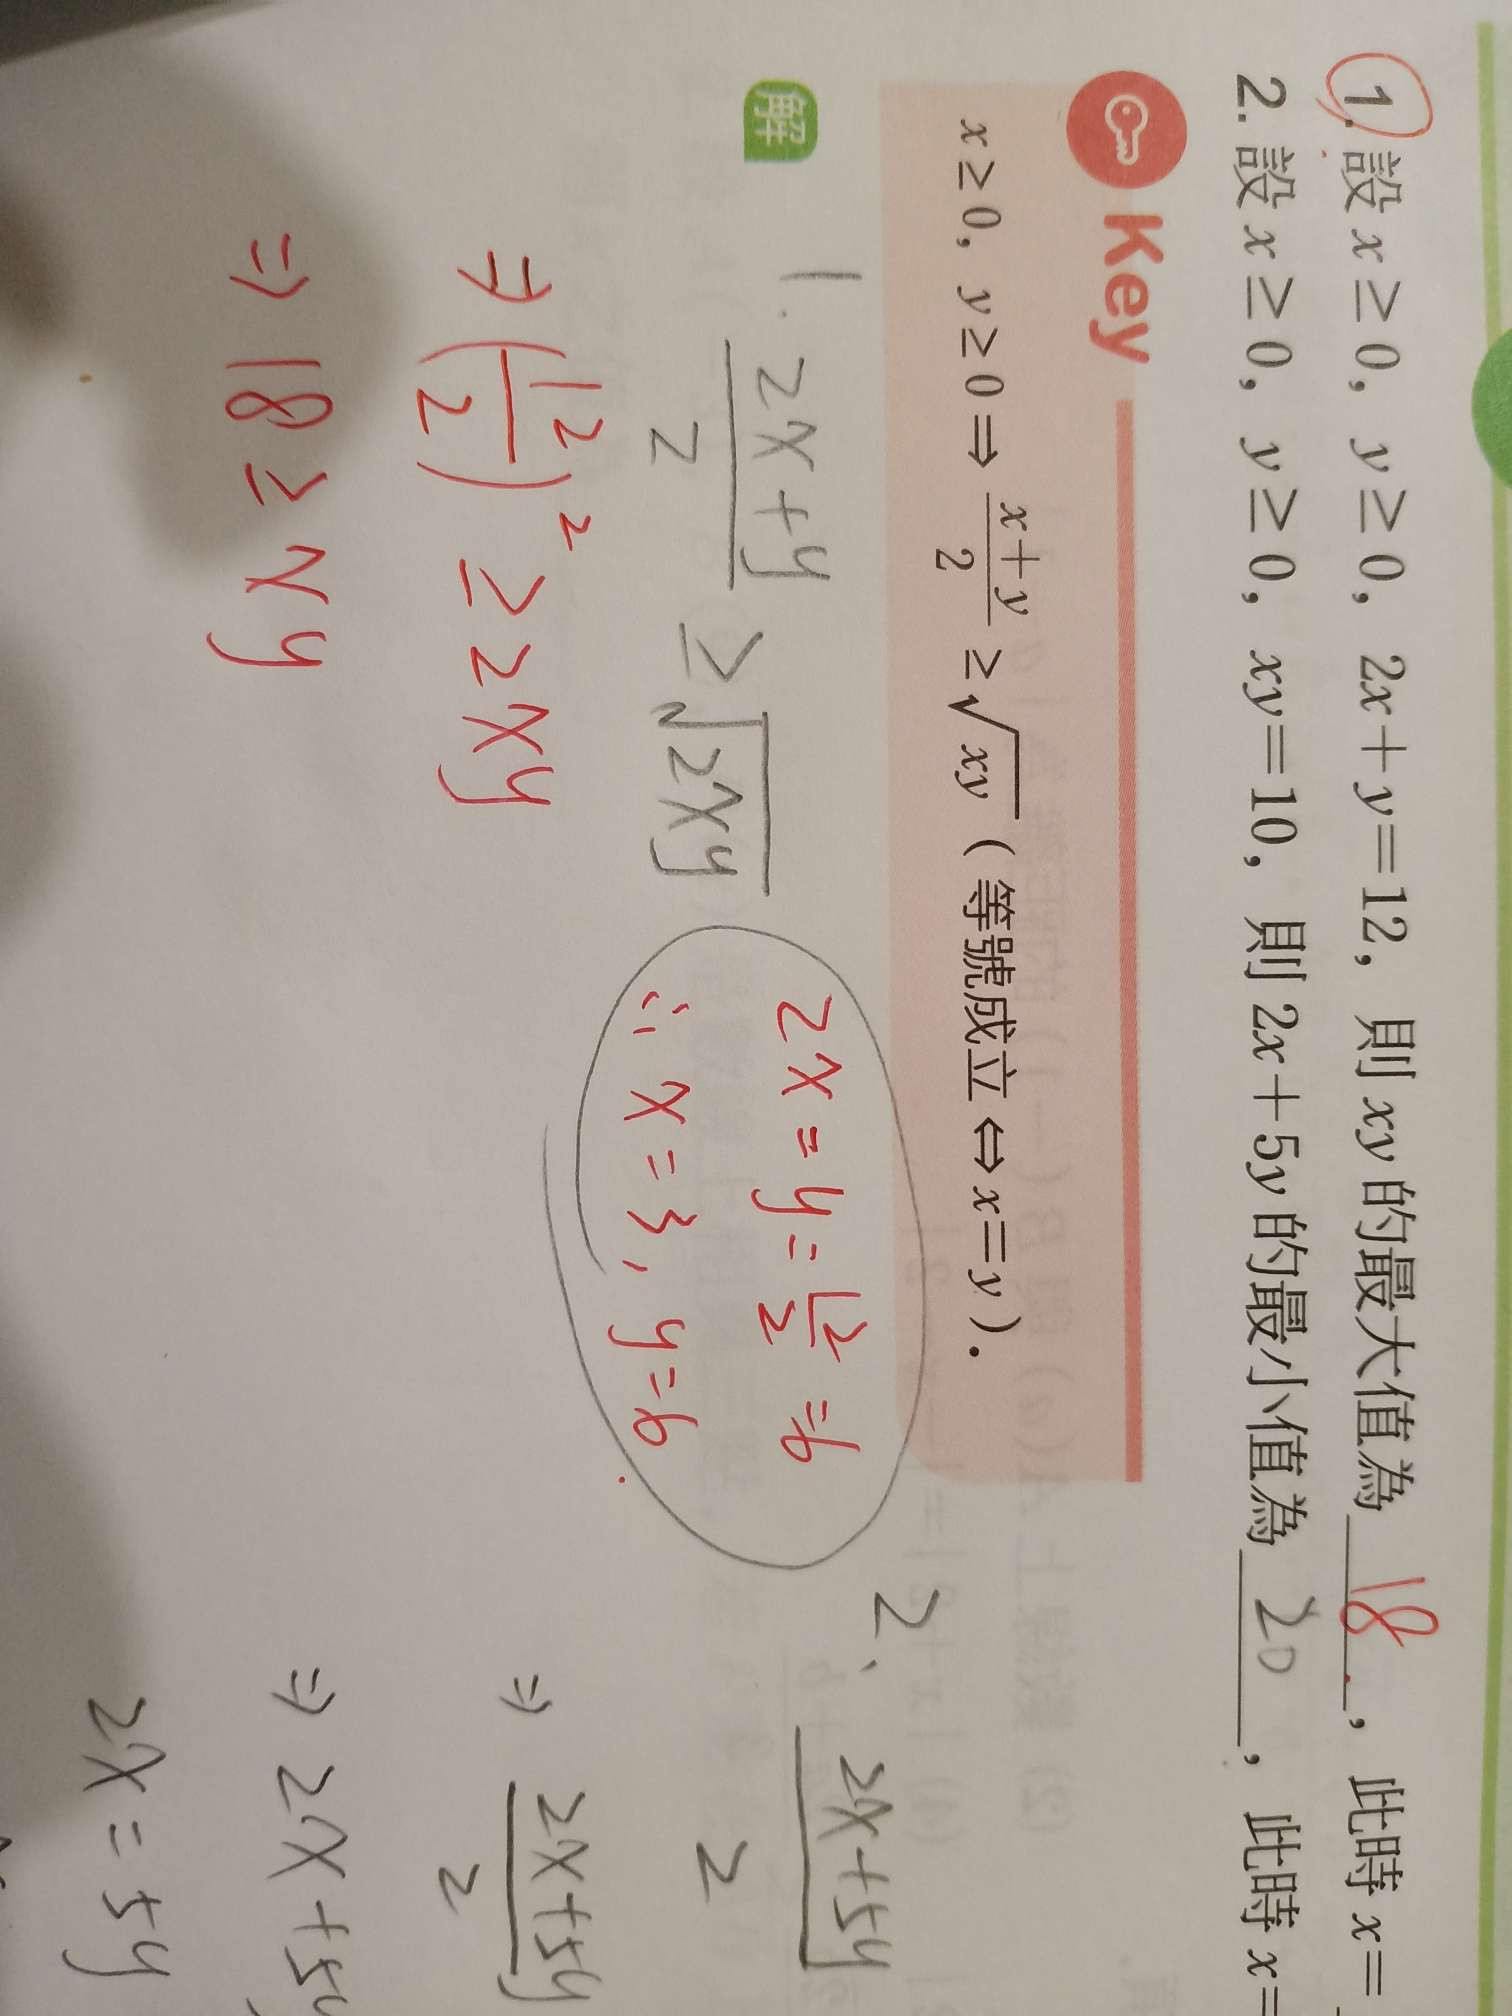 1. 設 x≥0, y≥0, 2x+y=12, 則 xy 的最大值為 18 , 此時 x=
2. 設 x≥0, y≥0, xy=10, 則 2x+5y 的最小值為 20 , 此時 x=
Key
x≥0, y≥0⇒ (x+y)/2 ≥√xy (等號成立⇔x=y).
解
1. (2x+y)/2 ≥ √2xy
⇒ (12/2)² ≥ 2xy
⇒ 18 ≥ xy
2x = y = 12/2 = 6
∴ x = 3, y = 6
2、 (2x+5y)/2
⇒ (2x+5y)/2
⇒ 2x+5y
2x = 5y